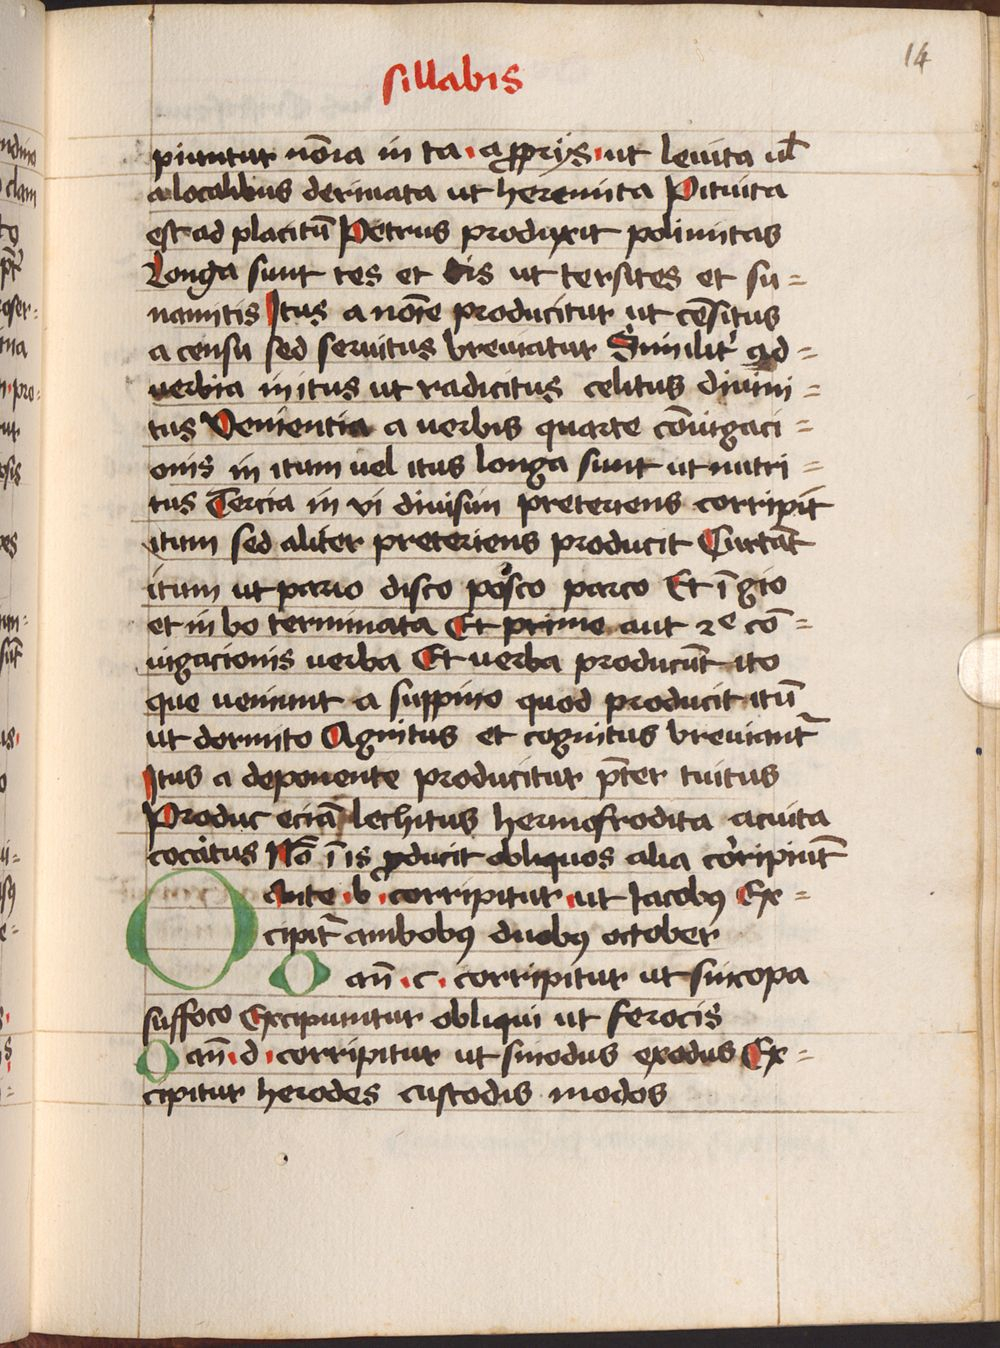 14
sillabis
piuntur nōīa in ta · a ꝓprijs · ut leuita ul̄
a localibus deriuata ut heremita Pituita
est ad placitū Petrus produxit polimitas
Longa sunt tes et tis ut tersites et su =
namitis Itus a noīe producitur ut cēsitus
a censu sed seruitus breuiatur Similit' ad =
uerbia in itus ut radicitus celitus diuini =
tus Uenientia a uerbis quarte cōiugaci =
onis in itum uel itus longa sunt ut nutri =
tus Tercia in vi diuisim preteriens corripit
itum sed aliter preteriens producit Curtāt
itum ut pario disco posco parco Et ī gio
et in bo terminata Et prime aut 2e cō =
iugacionis uerba Et uerba producūt ito
que ueniunt a suppino quod producit itū
ut dormito Agnitus et cognitus breuiant̄
Itus a deponente producitur p̄ter tuitus
Produc eciā lechitus hermofrodita acuita
cocitus Nō ī is ꝓducit obliquos alia corripiūt
O ante · b · corripitur · ut Iacobꝰ Ex =
cipit̄ ambobꝰ duobꝰ october
O an̄ · c · corripitur ut sincopa
suffoco Excipiuntur obliqui ut ferocis
O an̄ · d · corripitur ut sinodus exodus Ex =
cipitur herodes custodis modos